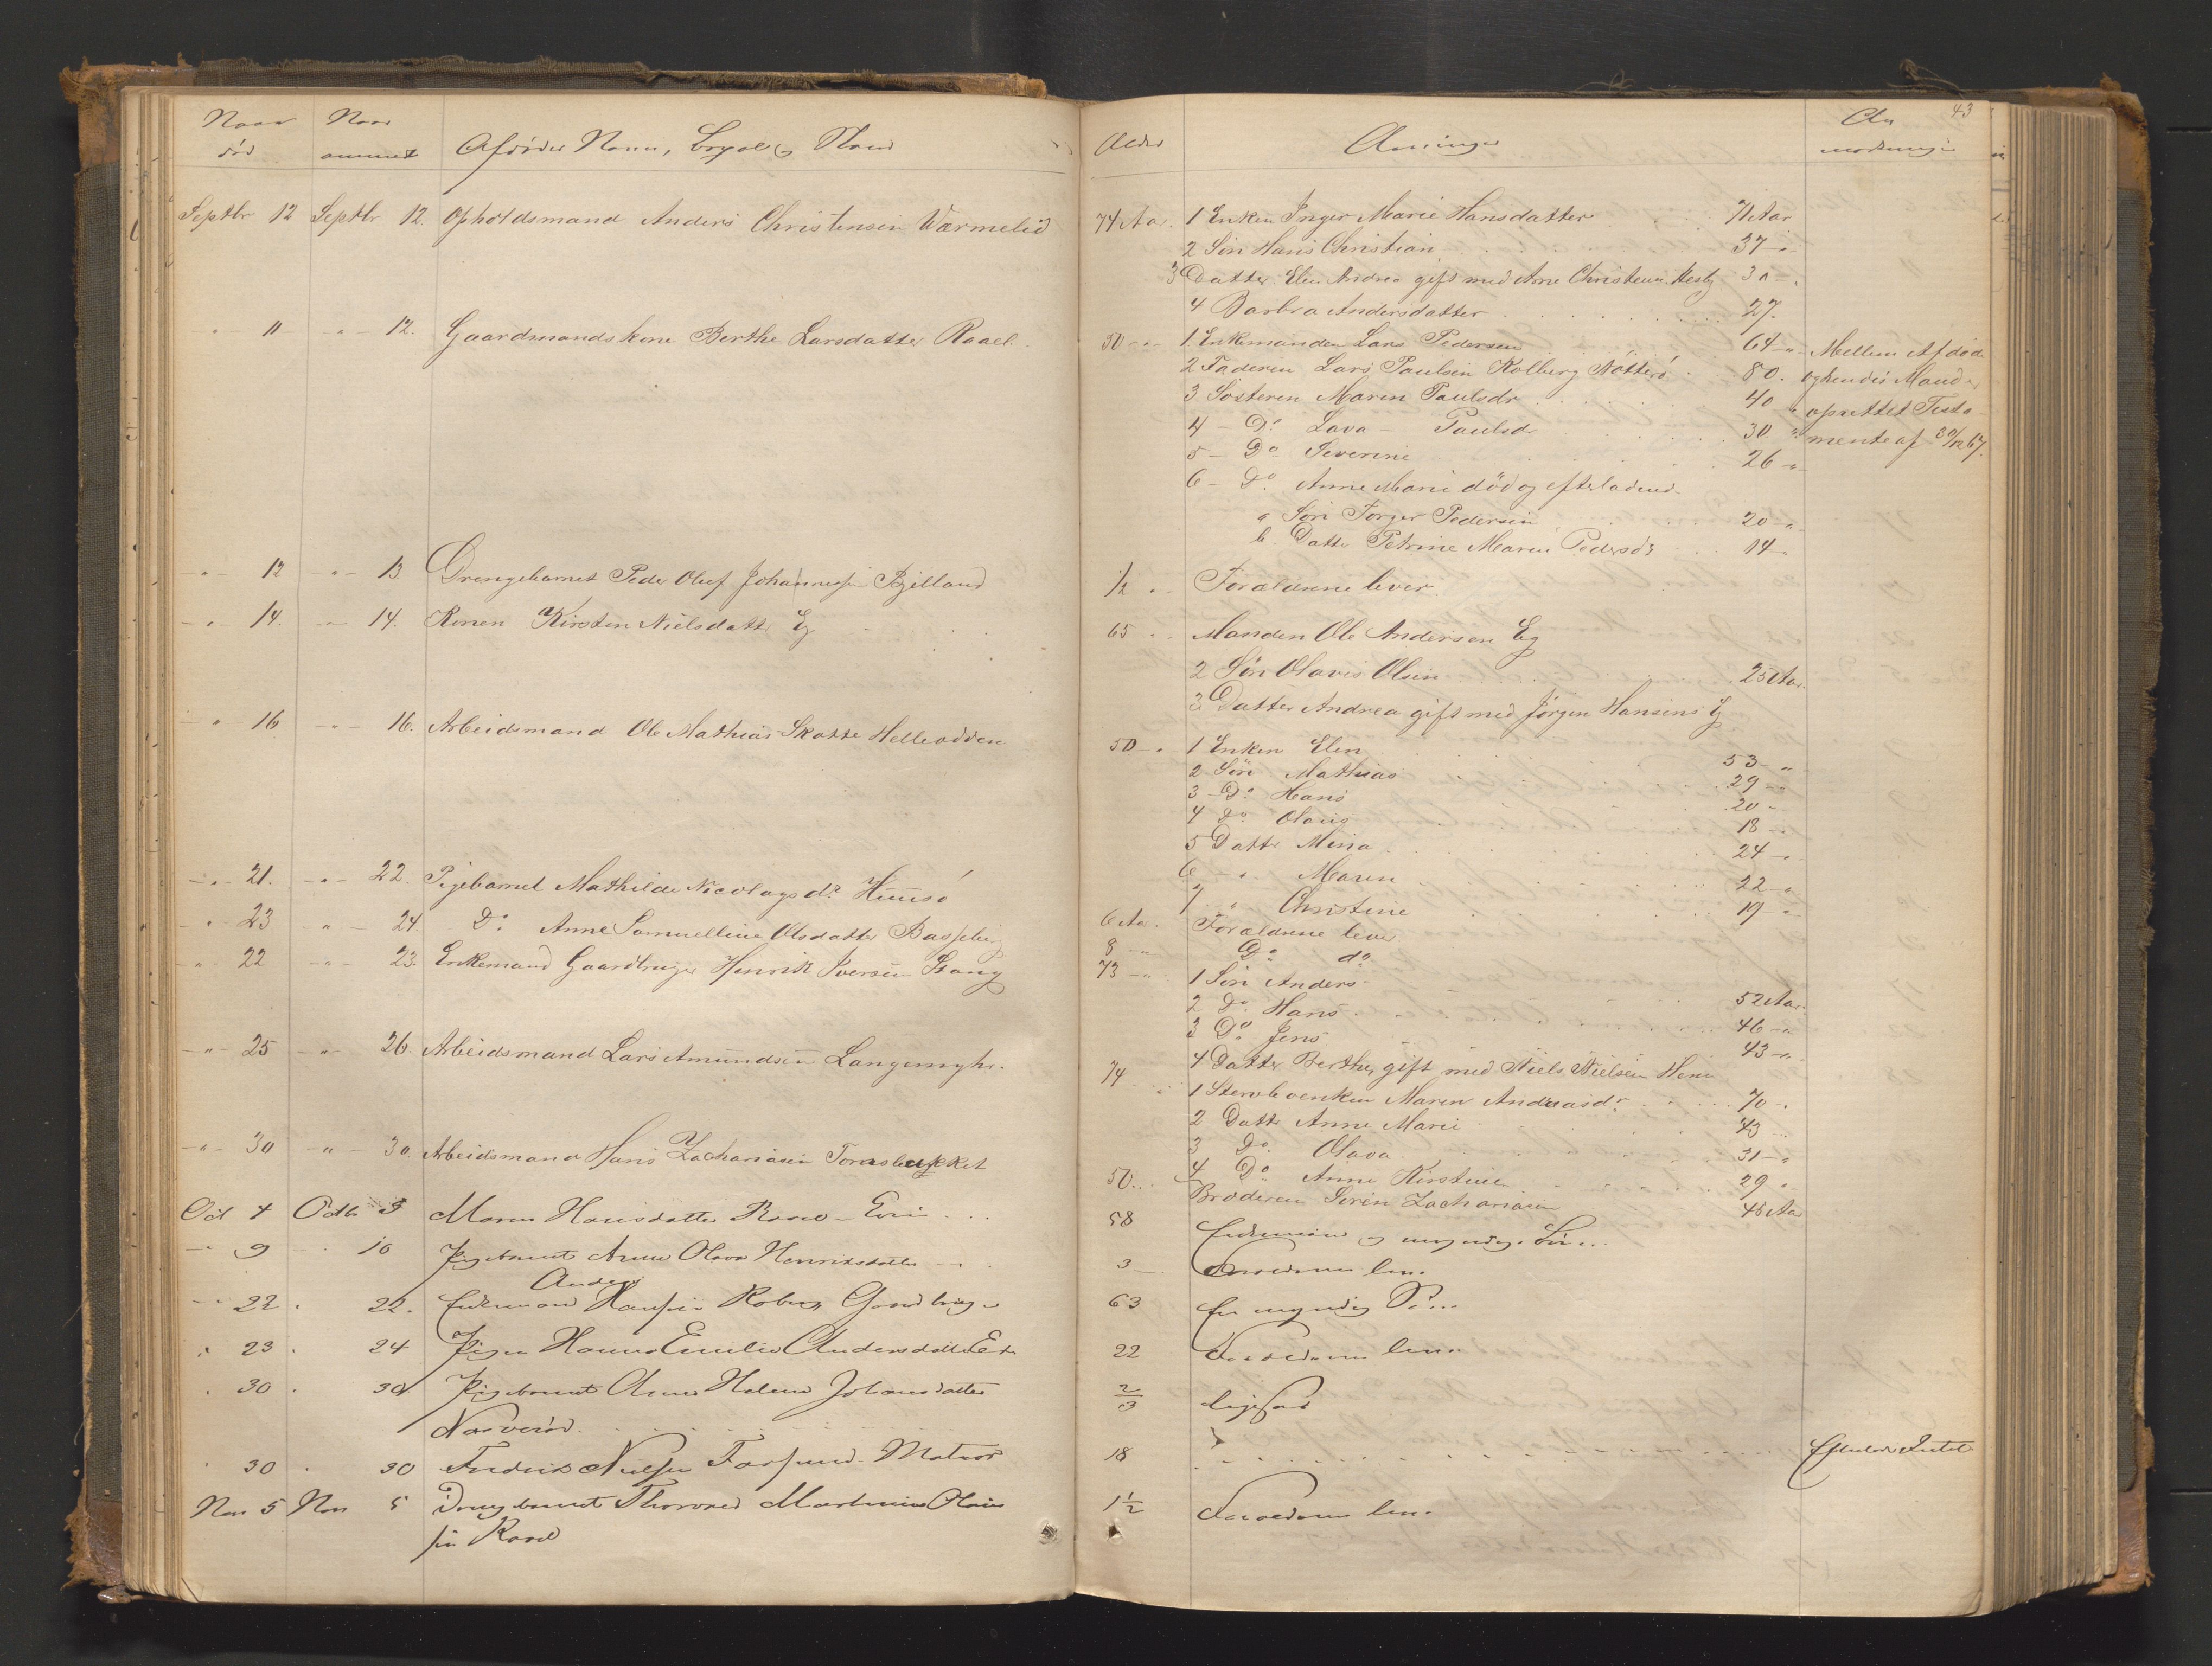 Naar død
Naar anmeldt
Afdødes Navn, Bopæl og Stand
Septbr 12 Septbr 12. Opholdsmand Anders Christensen Warmelid
" 11 " 12. Gaardmandskone Berthe Larsdatter Raael.
" 12 " 13 Drengebarnet Peder Oluf Johannesen Bjelland
" 14. " 14. Konen Kirsten Nielsdattr Eg
" 16 " 16. Arbeidsmand Ole Mathias Skatte Helleodden
" 21. " 22. Pigebarnet Mathilde Nicolaysdr. Huusö
" 23 " 24. Do Anne Samuelline Olsdatter Basseberg
" 22 " 23. Enkemand Gaardbruger Henrik Iversen Stang
" 25 " 26. Arbeidsmand Lars Amundsen Langemyhr.
" 30 " 30. Arbeidsmand Hans Zachariasen
Oct 4 Octbr 5 Maren Hansdatter
" 9 " 10 Pigebarnet Anne Olava Henriksdatter
Anders
" 22 . 22. Enkemand Hansen Gaardbruger
" 23 . 24 Pigen Hanna Emilie Andersdatter
" 30 . 30 Pigebarnet Anne Helene Johansdatter
Narverød
" 30 . 30 Fredrik Nielsen Farsund. Matros
Nov 5 Nov 5 Drengebarnet Thorvald Martinius Olaus
sen Raael
43
Alder
Arvinger
Anmærkninger
74 Aar. 1 Enken Inger Marie Hansdatter 71 Aar
2 Søn Hans Christian 37 "
3 Datter Elen Andrea gift med Arne Christensen Hesby 30 "
4 Barbra Andersdatter 27.
50 " 1. Enkemanden Lars Pedersen 64 " Mellem Afdøde
2 Faderen Lars Paulsen Kolberg Nötterö 80. og hendes Mand er
3 Søsteren Maren Paulsdr 40 " oprettet Testa
4 - Do Lava - Paulsdr 30 " mente af 30/12 67.
5 - Do Severine 26 "
6 - Do Anne Marie død og efterladende
a Søn Torger Pedersen 20 "
b. Dattr Petrine Maren Pedersdr 14 "
1/2 " Forældrene lever.
65 " Manden Ole Andersen Eg
2 Søn Olavis Olsen 25 Aar.
3 Datter Andrea gift med Jörgen Hansens Eg
50 " 1 Enken Elen 53 "
2 Søn Mathias 29 "
3 Do Hans 20 "
4 Do Olaus 18 "
5 Dattr Mina 24 "
6 " Maren 22 "
7 " Christine 19 "
6 Aar. Forældrene lever.
8 " Do do
73 " 1 Søn Anders 52 Aar.
2 Do Hans 46 "
3 Do Jens 43 "
4 Datter Berthe, gift med Niels Nielsen
74 " 1 Stervboenken Maren Andreasdr. 70 "
2 Dattr Anne Marie 43
3 Do. Olava 31 "
4 Do Anne Kirstine 29 "
50. Broderen Sören Zachariasen 45 Aar
58 Enkemand og myndige Bør...
3 Forældrene lever
63 En myndig Søn
22 Forældrene lever
2/3 ligesaa
18 Efterlod Intet
1 1/2 Forældrene lever